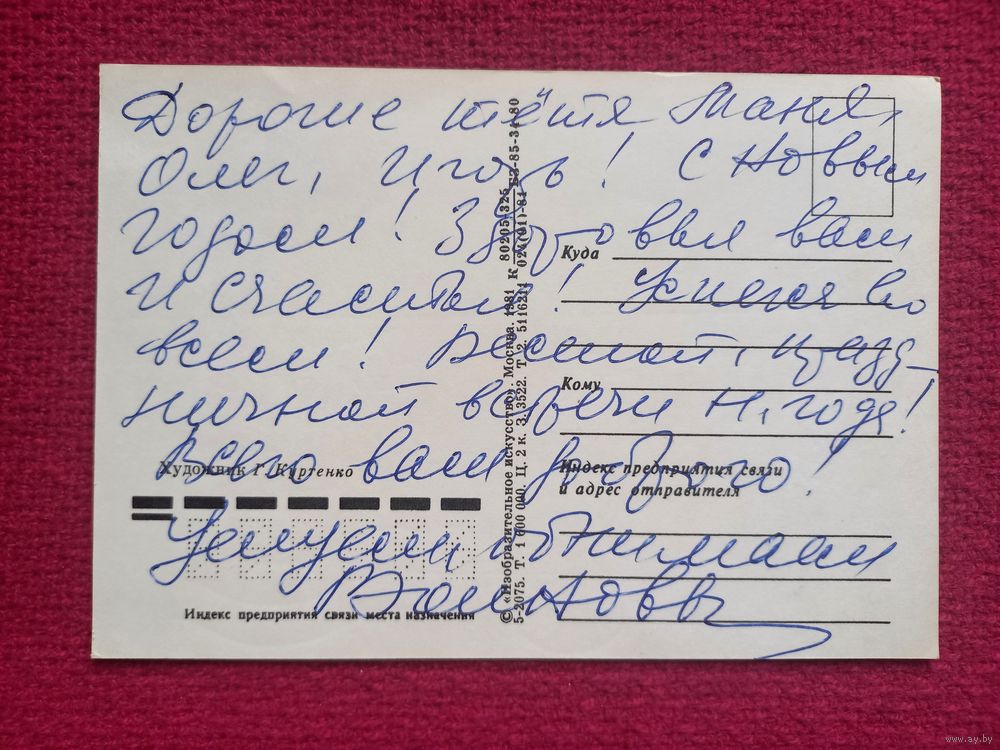 Дорогие тётя Маня,
Олег, Игорь! С Новым
годом! Здоровья вам
и счастья! Успеха во
всем! Веселой, празд-
ничной встречи Н. года!
Всего вам доброго!
Целуем, обнимаем
Куда
Кому
Индекс предприятия связи
и адрес отправителя
Художник Г. Куртенко
Индекс предприятия связи места назначения
© «Изобразительное искусство». Москва. 1981 К 80205-325 024(01)-81 БЗ-85-34-80
5-2075. Т. 1 600 000. Ц. 2 к. З. 3522. Т 2. 5116211
www.ay.by